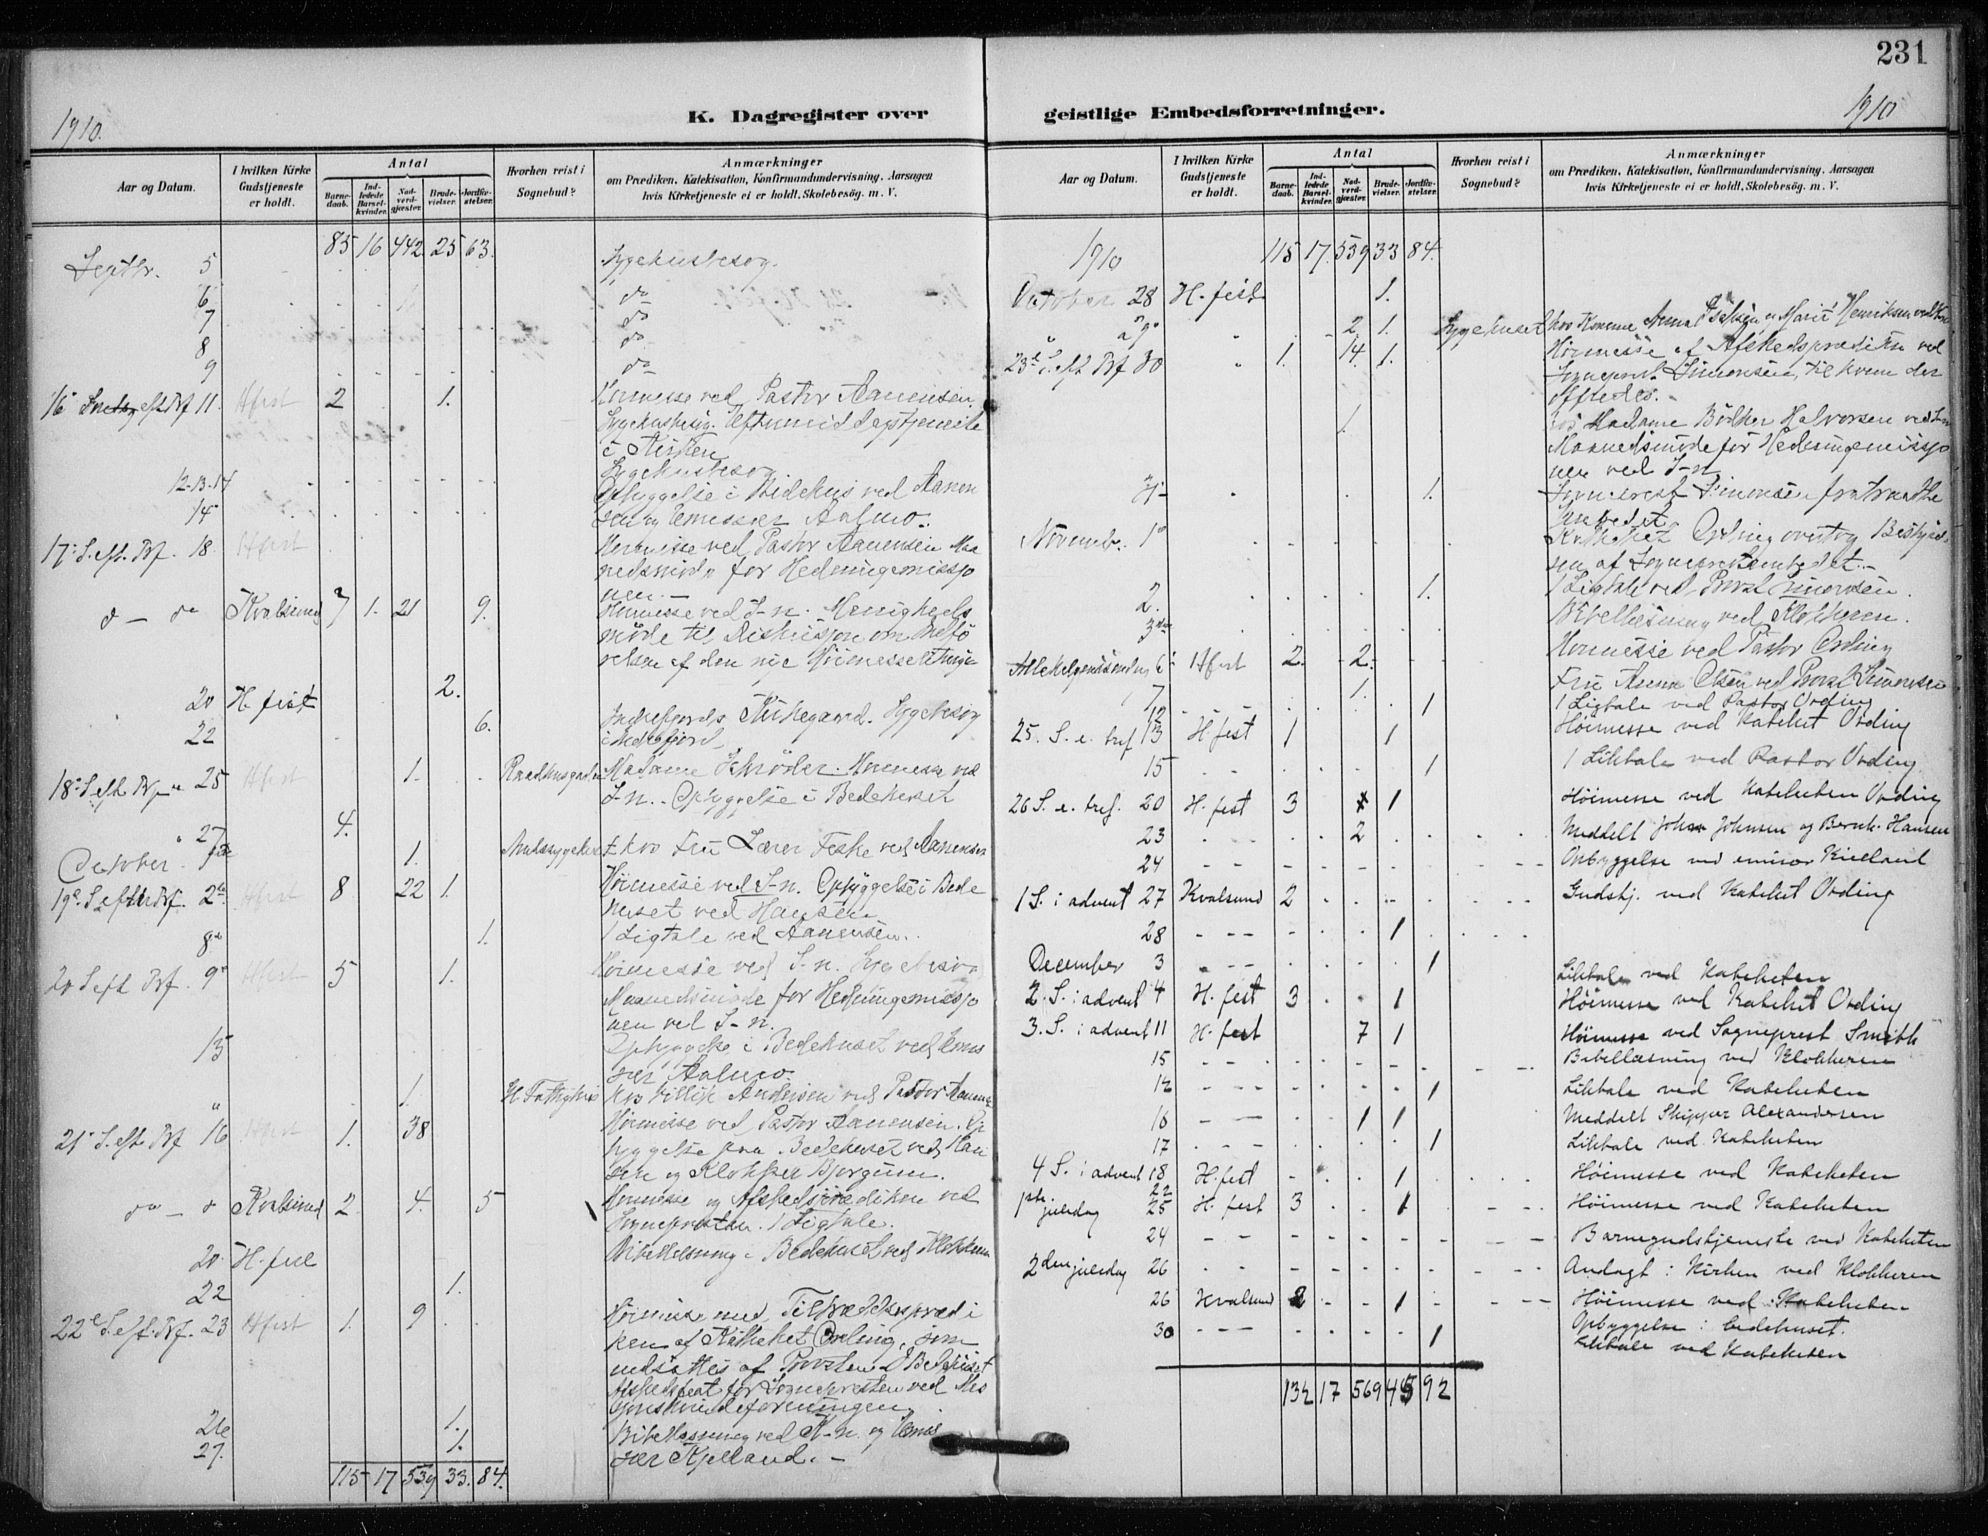 231
1910.
K. Dagregister over
Aar og Datum.
I hvilken Kirke Gudstjeneste er holdt.
Antal
Barnedaab.
Indledede Barselkvinder.
Nadverdgjæster.
Brudevielser.
Jordfæstelser.
Hvorhen reist i Sognebud?
Anmærkninger
om Prædiken, Katekisation, Konfirmandundervisning, Aarsagen
hvis Kirketjeneste ei er holdt, Skolebesøg. m. V.
85 16 442 25 63.
Septbr. 5 Sygehusbesøg.
6 do
7 do
8 do
9 do
11 Hfest 2 1. Høimesse ved Pastor Aanensen.
Sygehusbesøg.
i Kirken
12-13-14 Sygehusbesøg
Opbyggelse i Bedehus ved Aanen
sen og Emissær Aalmo.
17. S. eft. Trf. 18. Hfest Høimesse ved Pastor Aanensen Maa
nedsmøde for Hedningemissjo
nen.-
d - do Kvalsund 7 1. 21 9. Høimesse ved S-n. Menigheds
møde til Diskusjon om Indfø
relsen af den nye Høimesseliturgi
20 H. fest 2.
22 6. Indrefjords Kirkegaard. Sygebesøg
18. S. eft. Trf. 25 Hfest 1. Raadhusgaden Madame Schrøder. Høimesse ved
S-n. Opbyggelse i Bedehuset
27 4.
October 1ste 1. hos Fru Lærer Feske ved Aanensen
19. S. eft. Trf. 2den Hfest 8 22 1. Høimesse ved S-n. Opbyggelse i Bede
huset ved Hansen
8de 1. 1 Ligtale ved Aanensen.
20 S. eft. Trf. 9de Hfest 5 1. Høimesse ved S-n. Sygebesøg
Maanedsmøde for Hedningemissjo
nen ved S-n.
15 Opbyggelse i Bedehuset ved Emis
sær Aalmo.
1. H. Fattighus hos Andersen ved Pastor Aanens
21. S. eft. Trf. 16 Hfest 1. 38 Høimesse ved Pastor Aanensen. Op
byggelse paa Bedehuset ved Han
sen og Klokker Bjørgum.
do - d Kvalsund 2. 4. 5 Høimesse og Afskedsprædiken ved
Sognepresten. 1 Ligtale.
20. H. fest Bibellesning i Bedehuset ved Klokkeren
22 1.
22. S. eft. Trf. 23 Hfest 1. 9 Høimesse med Tiltrædelsesprædi
ken af Kateket Ording, som
indsattes af Provsten. I Bedehuset
Afskedsfest for Sognepresten ved Mis
jonskvindeforeningen.
26 1.
27. 1. Bibellæsning ved K-n. og Emis
sær Kjelland.-
115 17 539 33. 84.
1910
geistlige Embedsforretninger.
Aar og Datum.
I hvilken Kirke Gudstjeneste er holdt.
Antal
Barnedaab.
Indledede Barselkvinder.
Nadverdgjæster.
Brudevielser.
Jordfæstelser.
Hvorhen reist i Sognebud?
Anmærkninger
om Prædiken, Katekisation, Konfirmandundervisning, Aarsagen
hvis Kirketjeneste ei er holdt, Skolebesøg. m. V.
1910 115 17. 539 33 84.
October 28 H. fest 1.
29 2 1. Sygehuset hos Kone Anna og Marie Henriksen
23de S. eft Trf 30 1. 14. 1. Høimesse og Afskedsprædiken ved
Sogneprest Simonsen, til hvem der
ofredes.-
1. hos Madame Bødker Halvorsen ved S-n
Maanedsmøde for Hedningemissjo
nen ved S-n
31 1. Sogneprest Simonsen fratraadte
Embedet.
Novembr. 1 Kateket Ording overtog Bestyrel
sen af Sogneprestembedet.-
2. 1. 1 Ligtale ved Provst Simonsen.
3die Bibellæsning ved Klokkeren.
Allehelgenssøndag 6 Hfest 2. 2. Høimesse ved Pastor Ording
7 1. Fru Anna Olsen ved Provst Simonsen
12 1 1 Ligtale ved Pastor Ording
25. S. e. tref 13 H. fest 1 1 Høimesse ved Kateket Ording
15 1 1 Liktale ved Pastor Ording
26 S. e. tref. 20 H. fest 3 1 Høimesse ved Kateketen Ording
23 2 Meddelt Johan Johnsen og Bernh. Hansen
24 Opbyggelse ved emissær Kielland
1 S. i advent 27 Kvalsund 2 Gudstj. ved Kateket Ording
28 1
December 3 1 Liktale ved Kateketen
2. S. i advent 4 H. fest 3 1 Høimesse ved Kateket Ording
3. S. i advent 11 H. fest 7 1 Høimesse ved Sogneprest Smith
15 Bibellæsning ved Klokkeren
1 Liktale ved Kateketen
16 1 1 Meddelt Skipper Alexandersen
17 1 Liktale ved Kateketen
4 S. i advent 18 H. fest 1 Høimesse ved Kateketen
22
1ste juledag 25 H. fest 3 1 Høimesse ved Kateketen
24 Barnegudstjeneste ved Kateketen
2den juledag 26 Andagt i Kirken ved Klokkeren
26 Kvalsund 2 1 Høimesse ved Kateketen
Opbyggelse i bedehuset.
30 1 Liktale ved Kateketen
132 17 569 45 92